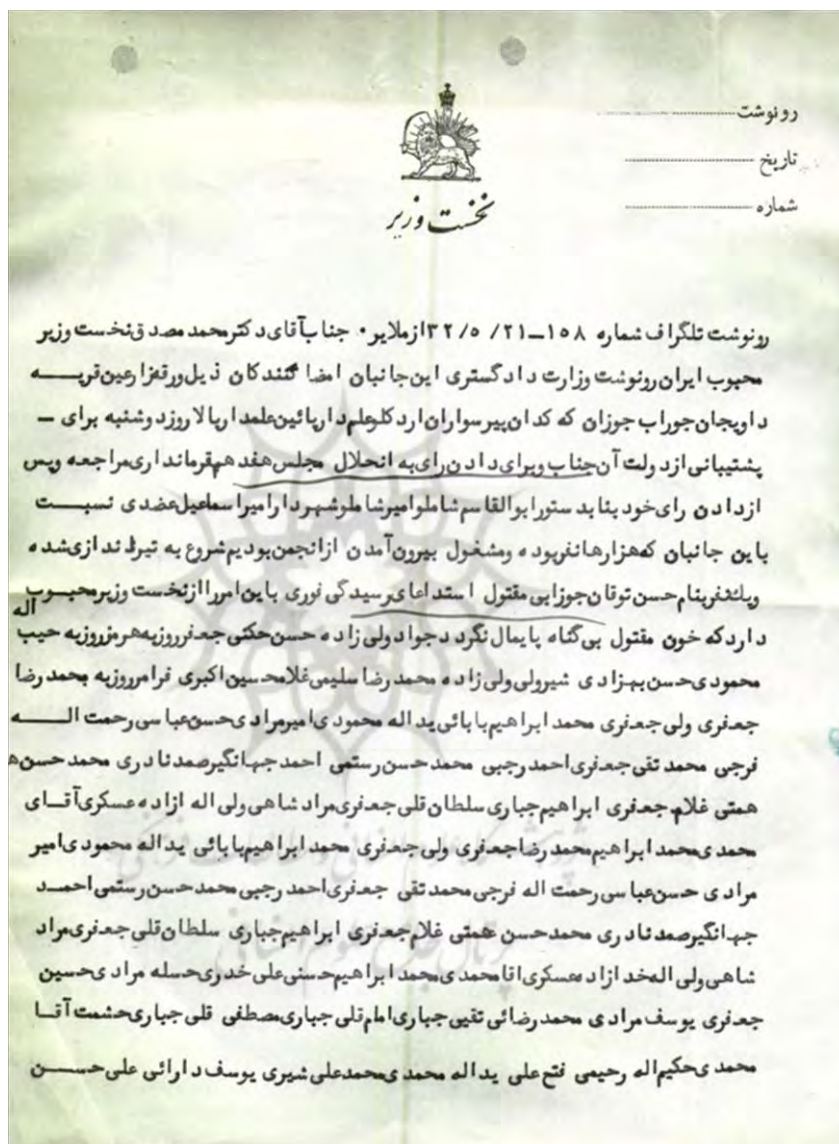 رونوشت
تاریخ
شماره
نخست وزیر
رونوشت تلگراف شماره ۱۵۸-۲۱/ ۵/ ۳۲ ازملایر۰ جناب آقای دکتر محمد مصدق نخست وزیر
محبوب ایران رونوشت وزارت دادگستری این جانبان امضا کنندگان ذیل ورقه زارعین قریه
داویجان جوراب جوزان که کدان پیرسواران ارد کلو علم دار پائین علمدار بالا روز دوشنبه برای -
پشتیبانی از دولت آن جناب وبرای دادن رای به انحلال مجلس هفدهم بفرمانداری مراجعه وپس
ازدادن رای خود بنا بدستور ابوالقاسم شاملو امیر شاملو شهردار امیر اسماعیل عضدی نسبت
باین جانبان که هزارها نفر بوده ومشغول بیرون آمدن از انجمن بودیم شروع به تیراندازی شده
ویک نفر بنام حسن توقان جوزایی مقتول استدعای رسیدگی فوری باین امر را از نخست وزیر محبوب
دارد که خون مقتول بی گناه پایمال نگردد جواد ولی زاده حسن حکتی جعفر روزبه هرمز روزبه حبیب اله
محمودی حسن بهزادی شیرولی ولی زاده محمد رضا سلیمی غلامحسین اکبری فرامرز روزبه محمد رضا
جعفری ولی جعفری محمد ابراهیم بابائی یداله محمودی امیر مرادی حسن عباسی رحمت الـــه
فرجی محمد تقی جعفری احمد رجبی محمد حسن رستمی احمد جهانگیر صمد نادری محمد حسن ه
همتی غلام جعفری ابراهیم جباری سلطان قلی جعفری مراد شاهی ولی اله ازاده عسکری آقـای
محمدی محمد ابراهیم محمد رضا جعفری ولی جعفری محمد ابراهیم بابائی یداله محمودی امیر
مرادی حسن عباسی رحمت اله فرجی محمد تقی جعفری احمد رجبی محمد حسن رستمی احمـد
جهانگیر صمد نادری محمد حسن همتی غلام جعفری ابراهیم جباری سلطان قلی جعفری مراد
شاهی ولی اله خدا زاده عسکری اقا محمدی محمد ابراهیم حسنی علی خدری حسله مرادی حسین
جعفری یوسف مرادی محمد رضائی تقیی جباری امام قلی جباری مصطفی قلی جباری حشمت آقـا
محمدی حکیم اله رحیمی فتح علی یداله محمدی محمد علی شیری یوسف دارائی علی حســن
پژوهشگاه علوم انسانی و مطالعات فرهنگی
پرتال جامع علوم انسانی